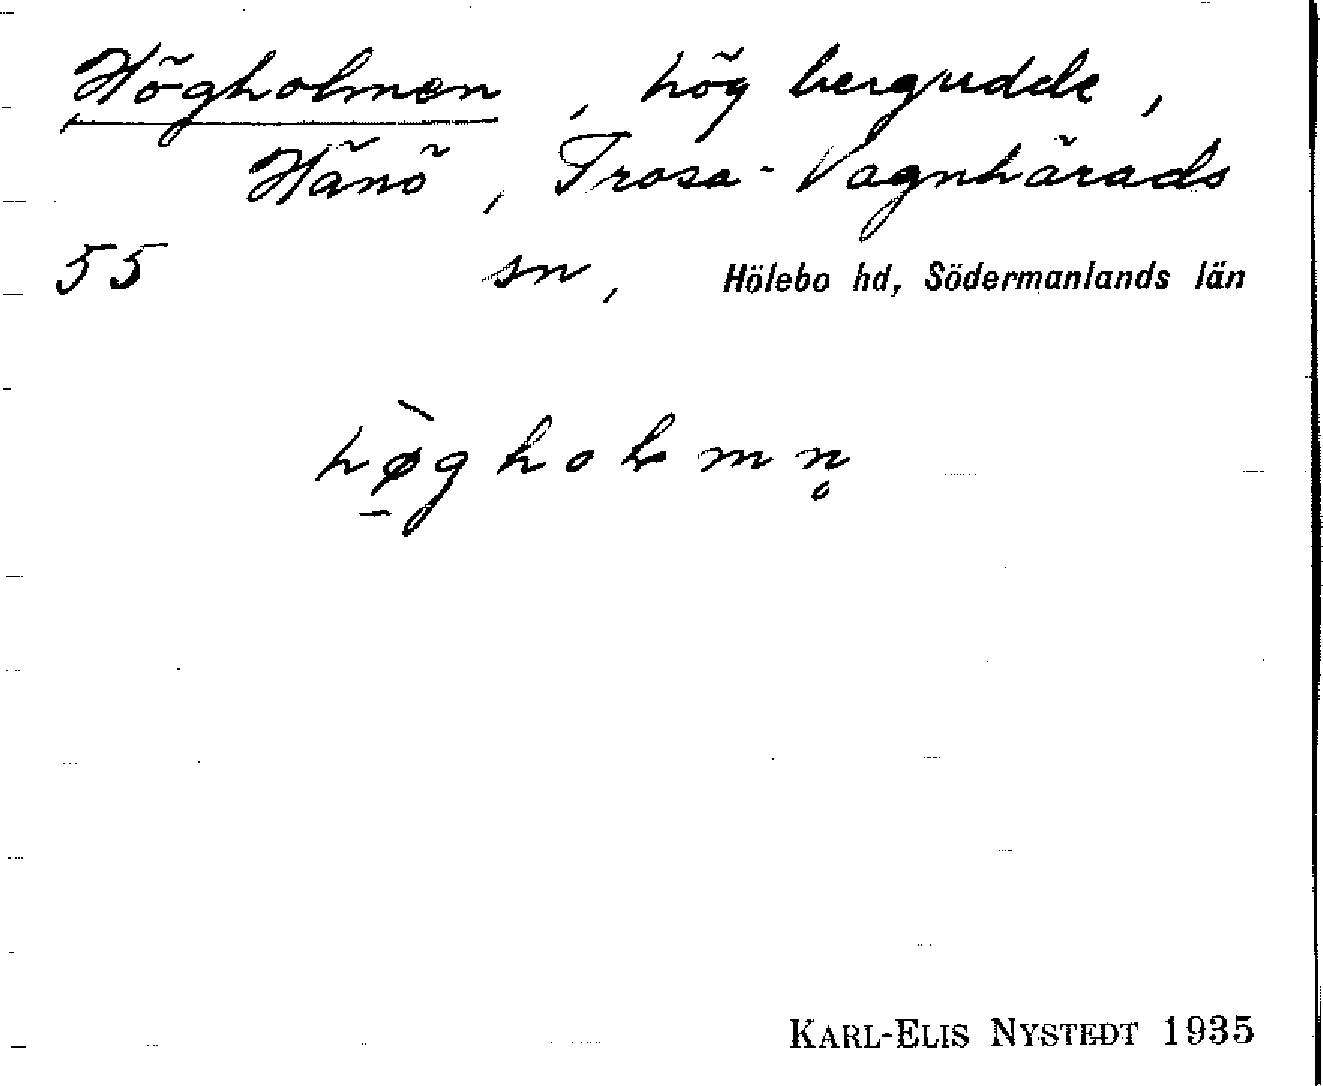 Högholmen, hög bergudde,
Hänö, Trosa-Vagnhärads
55 sn, Hölebo hd, Södermanlands län
hø̱̀gholmn̥
KARL-ELIS NYSTEDT 1935